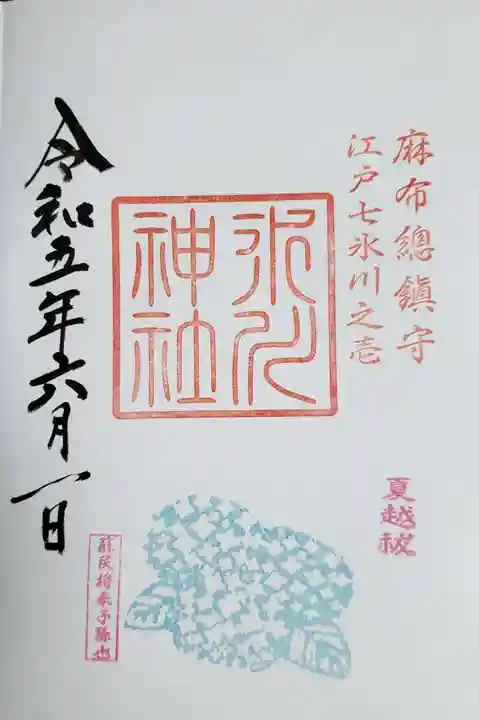 麻布總鎮守
江戸七氷川之壱
氷川
神社
夏越祓
令和五年六月一日
蘇民将来子孫也